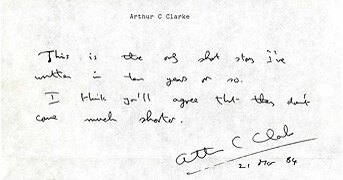 Arthur C Clarke
This is the only short story I've
written in ten years or so.
I think you'll agree that they don't
come much shorter.
Arthur C Clarke
21 Mar 84